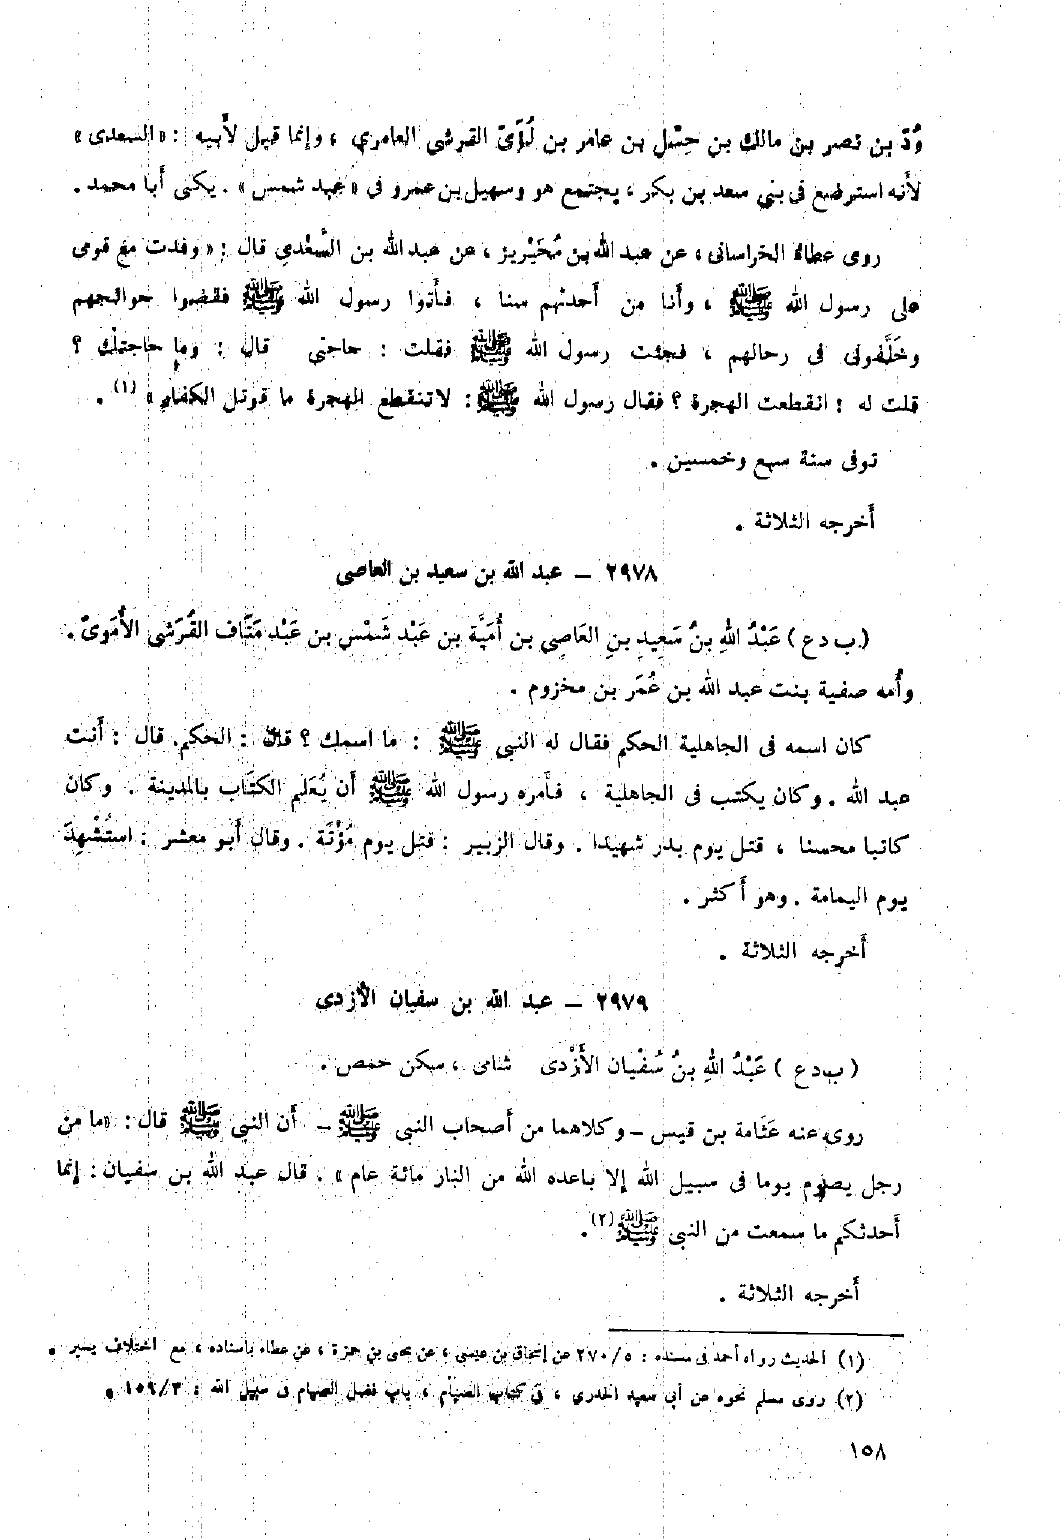 وُدّ بن نصر بن مالك بن حِسْل بن عامر بن لُؤَيّ القرشي العامري ، وإنما قيل لأبيه : «السعدى»
لأنه استرضع فى بني سعد بن بكر ، يجتمع هو وسهيل بن عمرو فى « عبد شمس » . يكنى أبا محمد .
روى عطاء الخراسانى ، عن عبد الله بن مُحَيْرِيز ، عن عبد الله بن السَّعْدي قال : « وفدت مع قومى
على رسول الله ﷺ ، وأنا من أحدثهم سنا ، فأتوا رسول الله ﷺ فقضوا حوائجهم
وخَلَّفونى فى رحالهم ، فجئت رسول الله ﷺ فقلت : حاجتى قال : وما حاجتك ؟
قلت له : انقطعت الهجرة ؟ فقال رسول الله ﷺ : لاتنقطع الهجرة ما قوتل الكفار » (١) .
توفى سنة سبع وخمسين .
أخرجه الثلاثة .
٢٩٧٨ – عبد الله بن سعيد بن العاصى
( ب د ع ) عَبْدُ اللهِ بنُ سَعِيدِ بنِ العَاصِي بن أُمَيَّة بن عَبْد شَمْس بن عَبْد مَنَاف القُرَشى الأُمَوىّ .
وأُمه صفية بنت عبد الله بن عُمَر بن مخزوم .
كان اسمه فى الجاهلية الحكم فقال له النبى ﷺ : ما اسمك ؟ قال : الحكم. قال : أنت
عبد الله . وكان يكتب فى الجاهلية ، فأمره رسول الله ﷺ أن يُعَلم الكتَاب بالمدينة . وكان
كاتبا محسنا ، قتل يوم بدر شهيدا . وقال الزبير : قتل يوم مُؤْتَة . وقال أبو معشر : استُشْهِدَ
يوم اليمامة . وهو أكثر .
أخرجه الثلاثة .
٢٩٧٩ – عبد الله بن سفيان الأزدى
( ب د ع ) عَبْدُ اللهِ بنُ سُفْيان الأَزْدى شامى ، سكن حمص .
روى عنه عَثَامة بن قيس – وكلاهما من أصحاب النبى ﷺ – أن النبى ﷺ قال : «ما من
رجل يصوم يوما فى سبيل الله إلا باعده الله من النار مائة عام» . قال عبد الله بن سفيان : إنما
أحدثكم ما سمعت من النبى ﷺ (٢) .
أخرجه الثلاثة .
(١) الحديث رواه أحمد فى مسنده : ٥/ ٢٧٠ عن إسحاق بن عيسى ، عن يحيى بن حمزة ، عن عطاء بإسناده ، مع اختلاف يسير .
(٢) روى مسلم نحوه عن أبي سعيد الخدري ، فى كتاب الصيام ، باب فضل الصيام فى سبيل الله : ٣/ ١٥٩ .
١٥٨